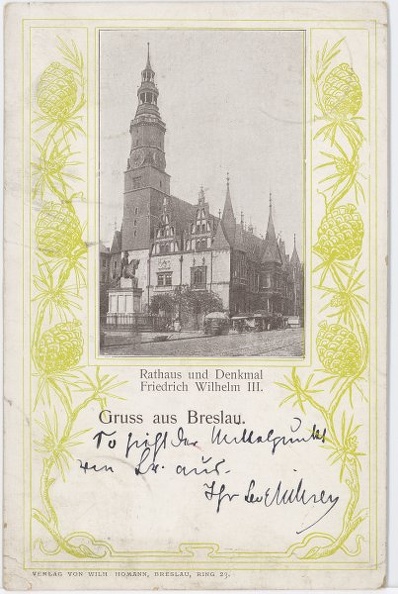 Rathaus und Denkmal
Friedrich Wilhelm III.
Gruss aus Breslau.
So sieht der Mittelpunkt
von Br. aus.
Ihr
VERLAG VON WILH. HOMANN, BRESLAU, RING 29.